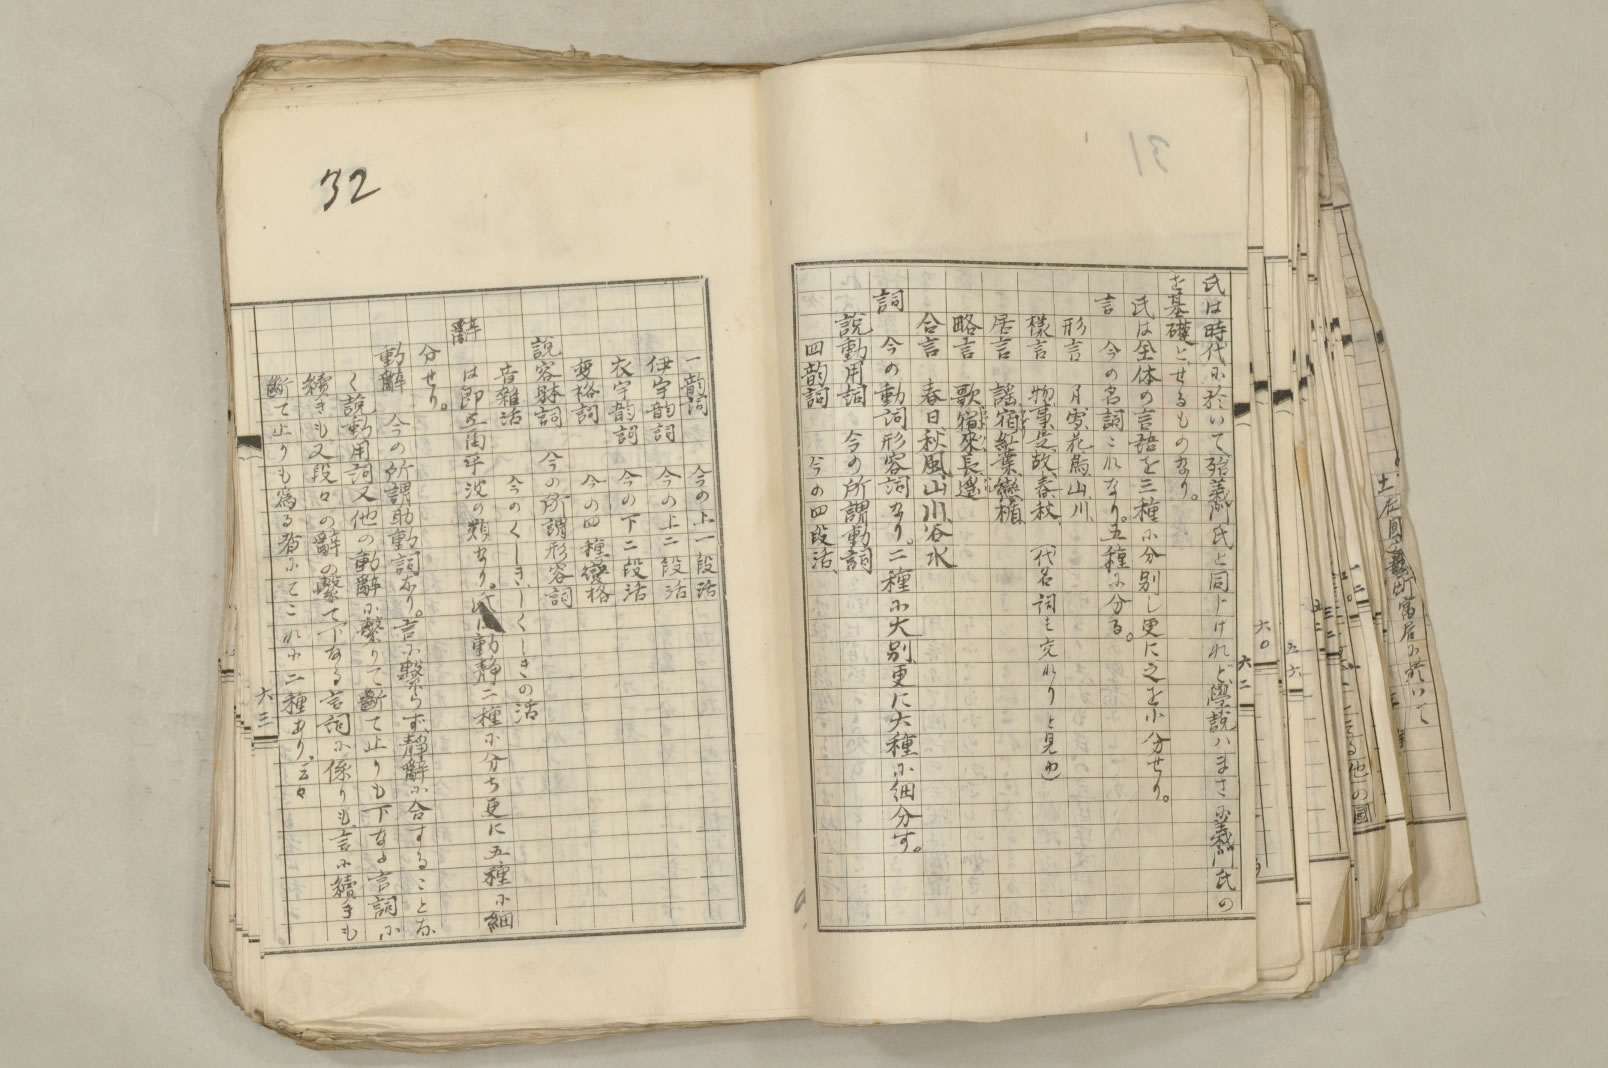 氏は時代に於いて強義門氏と同じけれど學說ハまさに義門氏の
を基礎とせるものなり。
氏は全体の言語を三種に分別し更に之を小分せり。
言　今の名詞これなり。五種に分る。
形言　月雪花鳥山川
樣言　物事是故春秋（代名詞も交れりと見ゆ）
居言　謡宿紅葉
略言　歌宿來長邊
合言　春日秋風山川谷水
詞　今の動詞形容詞なり。二種に大別更に六種に細分す。
說動用詞　今の所謂動詞
四韵詞　今の四段活
一韵詞　今の上一段活
伊字韵詞　今の上二段活
衣字韵詞　今の下二段活
變格詞　今の四種變格
說容躰詞　今の所謂形容詞
音雜活　今のくしきしくしきの活
辭　は即　の類なり。　に動靜二種に分ち更に五種に細
分せり。
動辭　今の所謂助動詞なり。言に繫らず靜辭に合することな
く說動用詞又他の動辭に繫りて斷て止りも下なる言詞に
續きも又段々の辭の繫て下なる言詞に係りも言に續きも
斷て止りも爲る有にてこれに二種あり。云々
六二
六三
32
31
六〇
五六